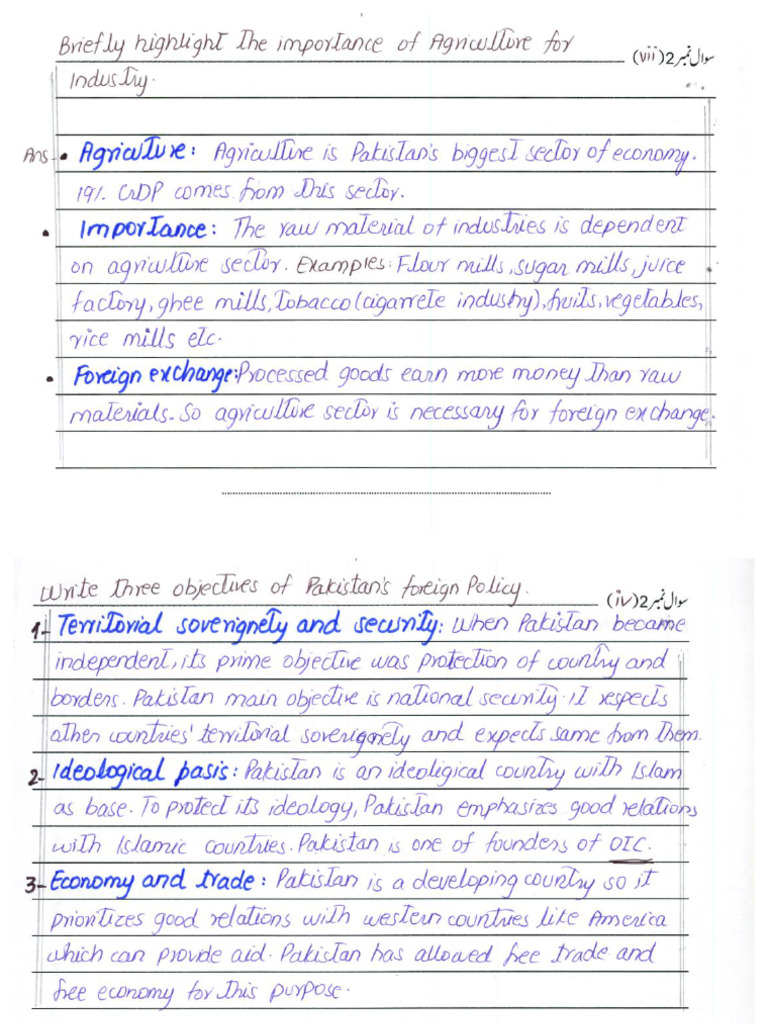 Briefly highlight the importance of Agriculture for
سوال نمبر 2 (vii)
Industry.
Ans • Agriculture: Agriculture is Pakistan's biggest sector of economy.
19% GDP comes from this sector.
• Importance: The raw material of industries is dependent
on agriculture sector. Examples: Flour mills, sugar mills, juice
factory, ghee mills, Tobacco (cigarrete industry), fruits, vegetables,
rice mills etc.
• Foreign exchange: Processed goods earn more money than raw
materials. So agriculture sector is necessary for foreign exchange.
Write three objectives of Pakistan's foreign Policy.
سوال نمبر 2 (iv)
1- Territorial soverignety and security: When Pakistan became
independent, its prime objective was protection of country and
borders. Pakistan main objective is national security. It respects
other countries' territorial soverignety and expects same from them.
2- Ideological basis: Pakistan is an ideoligical country with Islam
as base. To protect its ideology, Pakistan emphasizes good relations
with Islamic countries. Pakistan is one of founders of OIC.
3- Economy and trade: Pakistan is a developing country so it
prioritizes good relations with western countries like America
which can provide aid. Pakistan has allowed free trade and
free economy for this purpose.